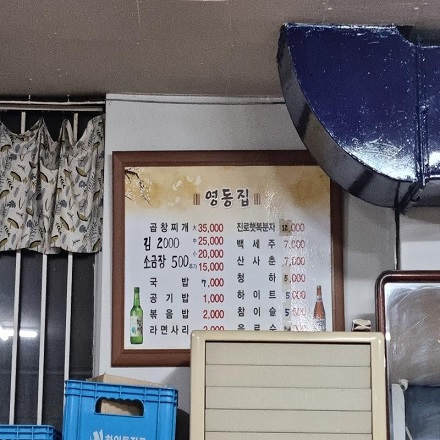 영동집
곱창찌개 大 35,000
김 2000 中 25,000
소금장 500 小 20,000
추가 15,000
국밥 7,000
공기밥 1,000
볶음밥 2,000
라면사리 2,000
진로햇복분자
백세주 7,000
산사춘 7,000
청하 5,000
하이트 5,000
참이슬
음료수